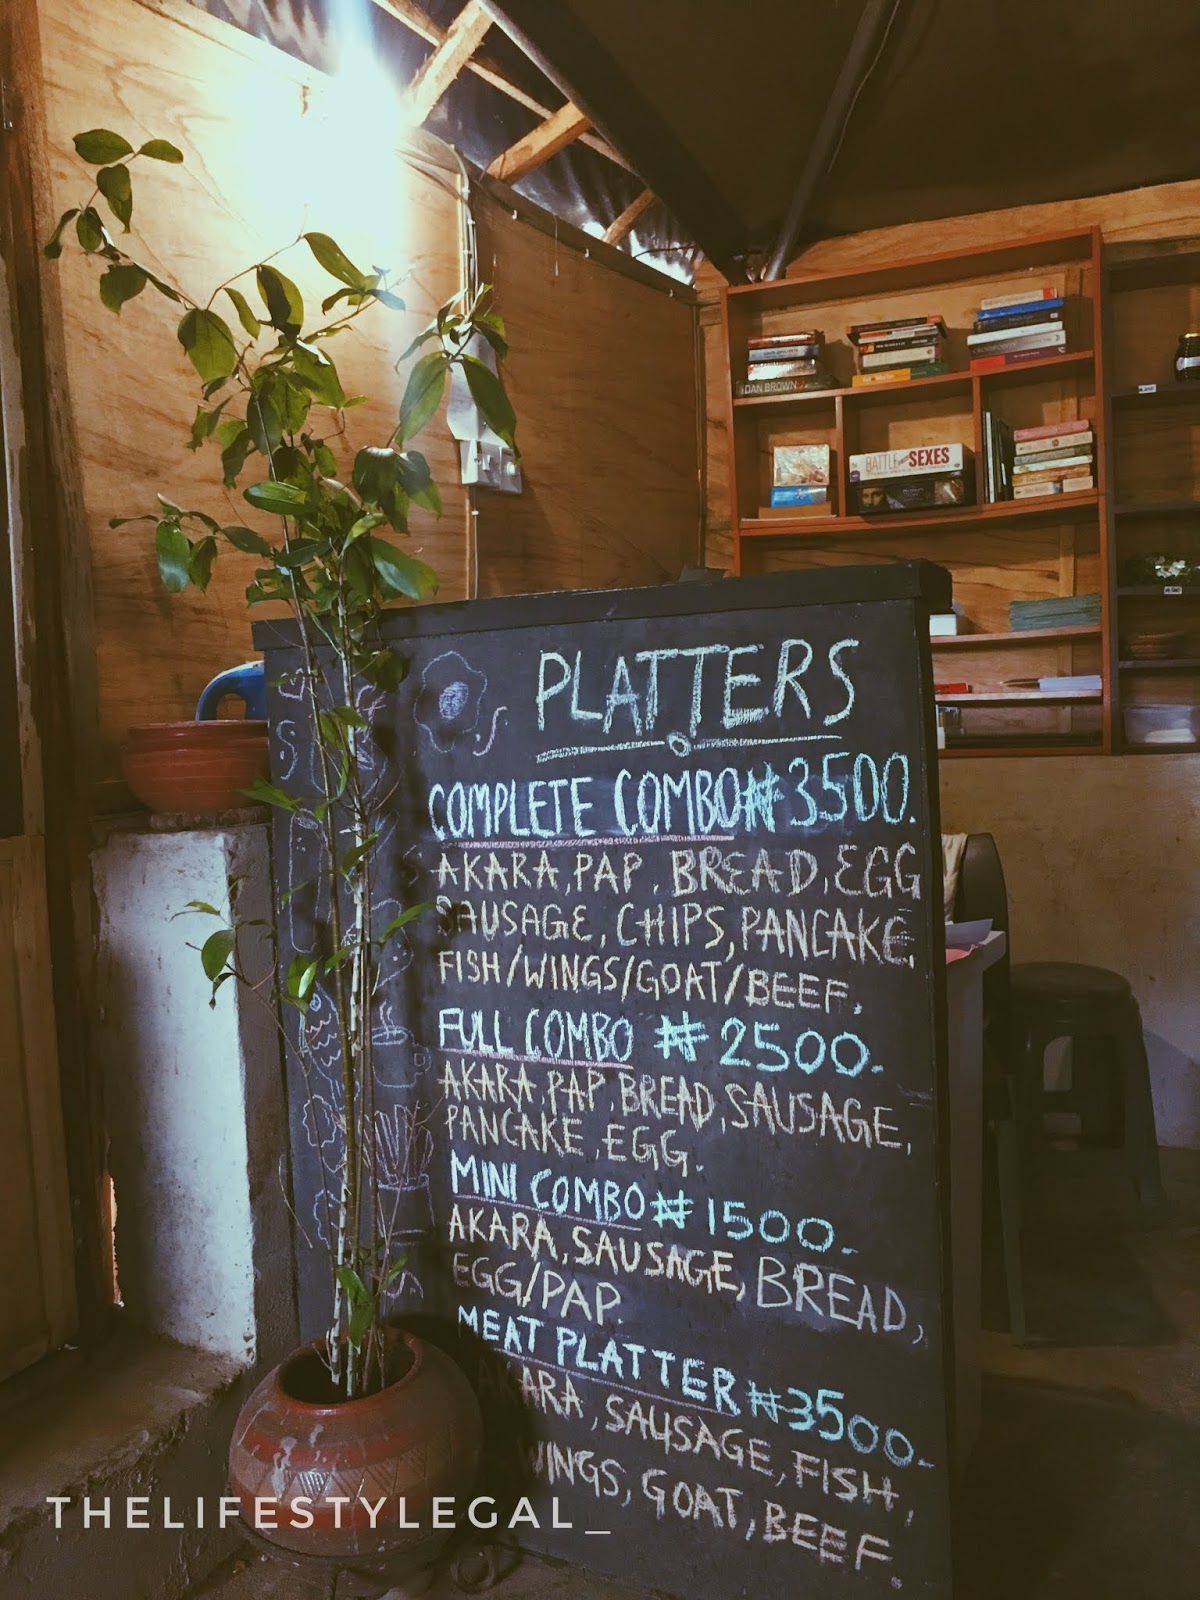 DAN BROWN
BATTLE
SEXES
PLATTERS
COMPLETE COMBO ₦3500.
AKARA, PAP. BREAD, EGG
SAUSAGE, CHIPS, PANCAKE,
FISH/WINGS/GOAT/BEEF.
FULL COMBO ₦ 2500.
AKARA, PAP, BREAD, SAUSAGE,
PANCAKE, EGG.
MINI COMBO ₦ 1500.
AKARA, SAUSAGE, BREAD,
EGG/PAP.
MEAT PLATTER ₦3500.
AKARA, SAUSAGE, FISH,
WINGS, GOAT, BEEF.
THELIFESTYLEGAL_